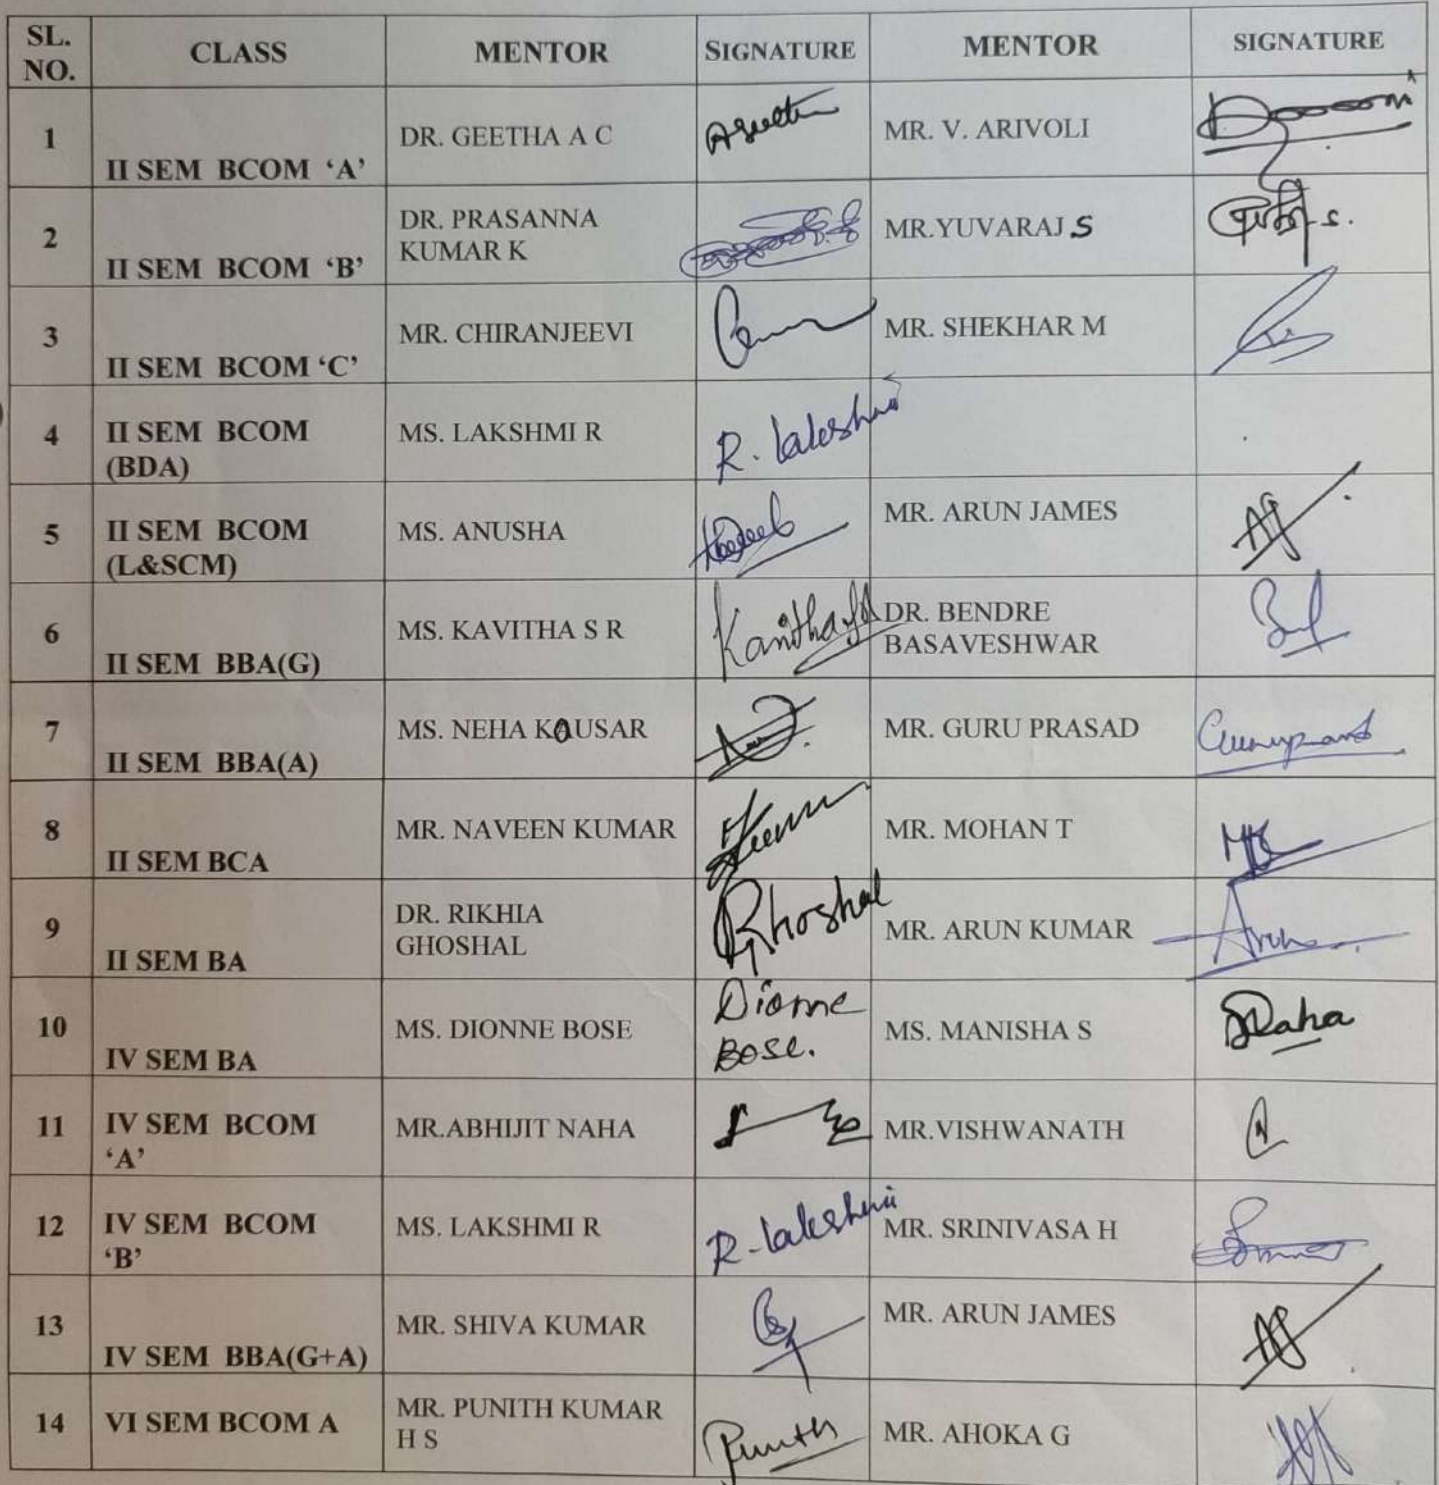 SL. NO. CLASS MENTOR SIGNATURE MENTOR SIGNATURE
1 II SEM BCOM ‘A’ DR. GEETHA A C AGeetha MR. V. ARIVOLI
2 II SEM BCOM ‘B’ DR. PRASANNA KUMAR K MR.YUVARAJ S
3 II SEM BCOM ‘C’ MR. CHIRANJEEVI MR. SHEKHAR M
4 II SEM BCOM (BDA) MS. LAKSHMI R R. Lakshmi
5 II SEM BCOM (L&SCM) MS. ANUSHA MR. ARUN JAMES
6 II SEM BBA(G) MS. KAVITHA S R DR. BENDRE BASAVESHWAR
7 II SEM BBA(A) MS. NEHA KOUSAR MR. GURU PRASAD Guruprasad
8 II SEM BCA MR. NAVEEN KUMAR MR. MOHAN T
9 II SEM BA DR. RIKHIA GHOSHAL RGhoshal MR. ARUN KUMAR Arun
10 IV SEM BA MS. DIONNE BOSE Dionne Bose. MS. MANISHA S
11 IV SEM BCOM ‘A’ MR.ABHIJIT NAHA MR.VISHWANATH
12 IV SEM BCOM ‘B’ MS. LAKSHMI R R. Lakshmi MR. SRINIVASA H
13 IV SEM BBA(G+A) MR. SHIVA KUMAR MR. ARUN JAMES
14 VI SEM BCOM A MR. PUNITH KUMAR H S Punith MR. AHOKA G